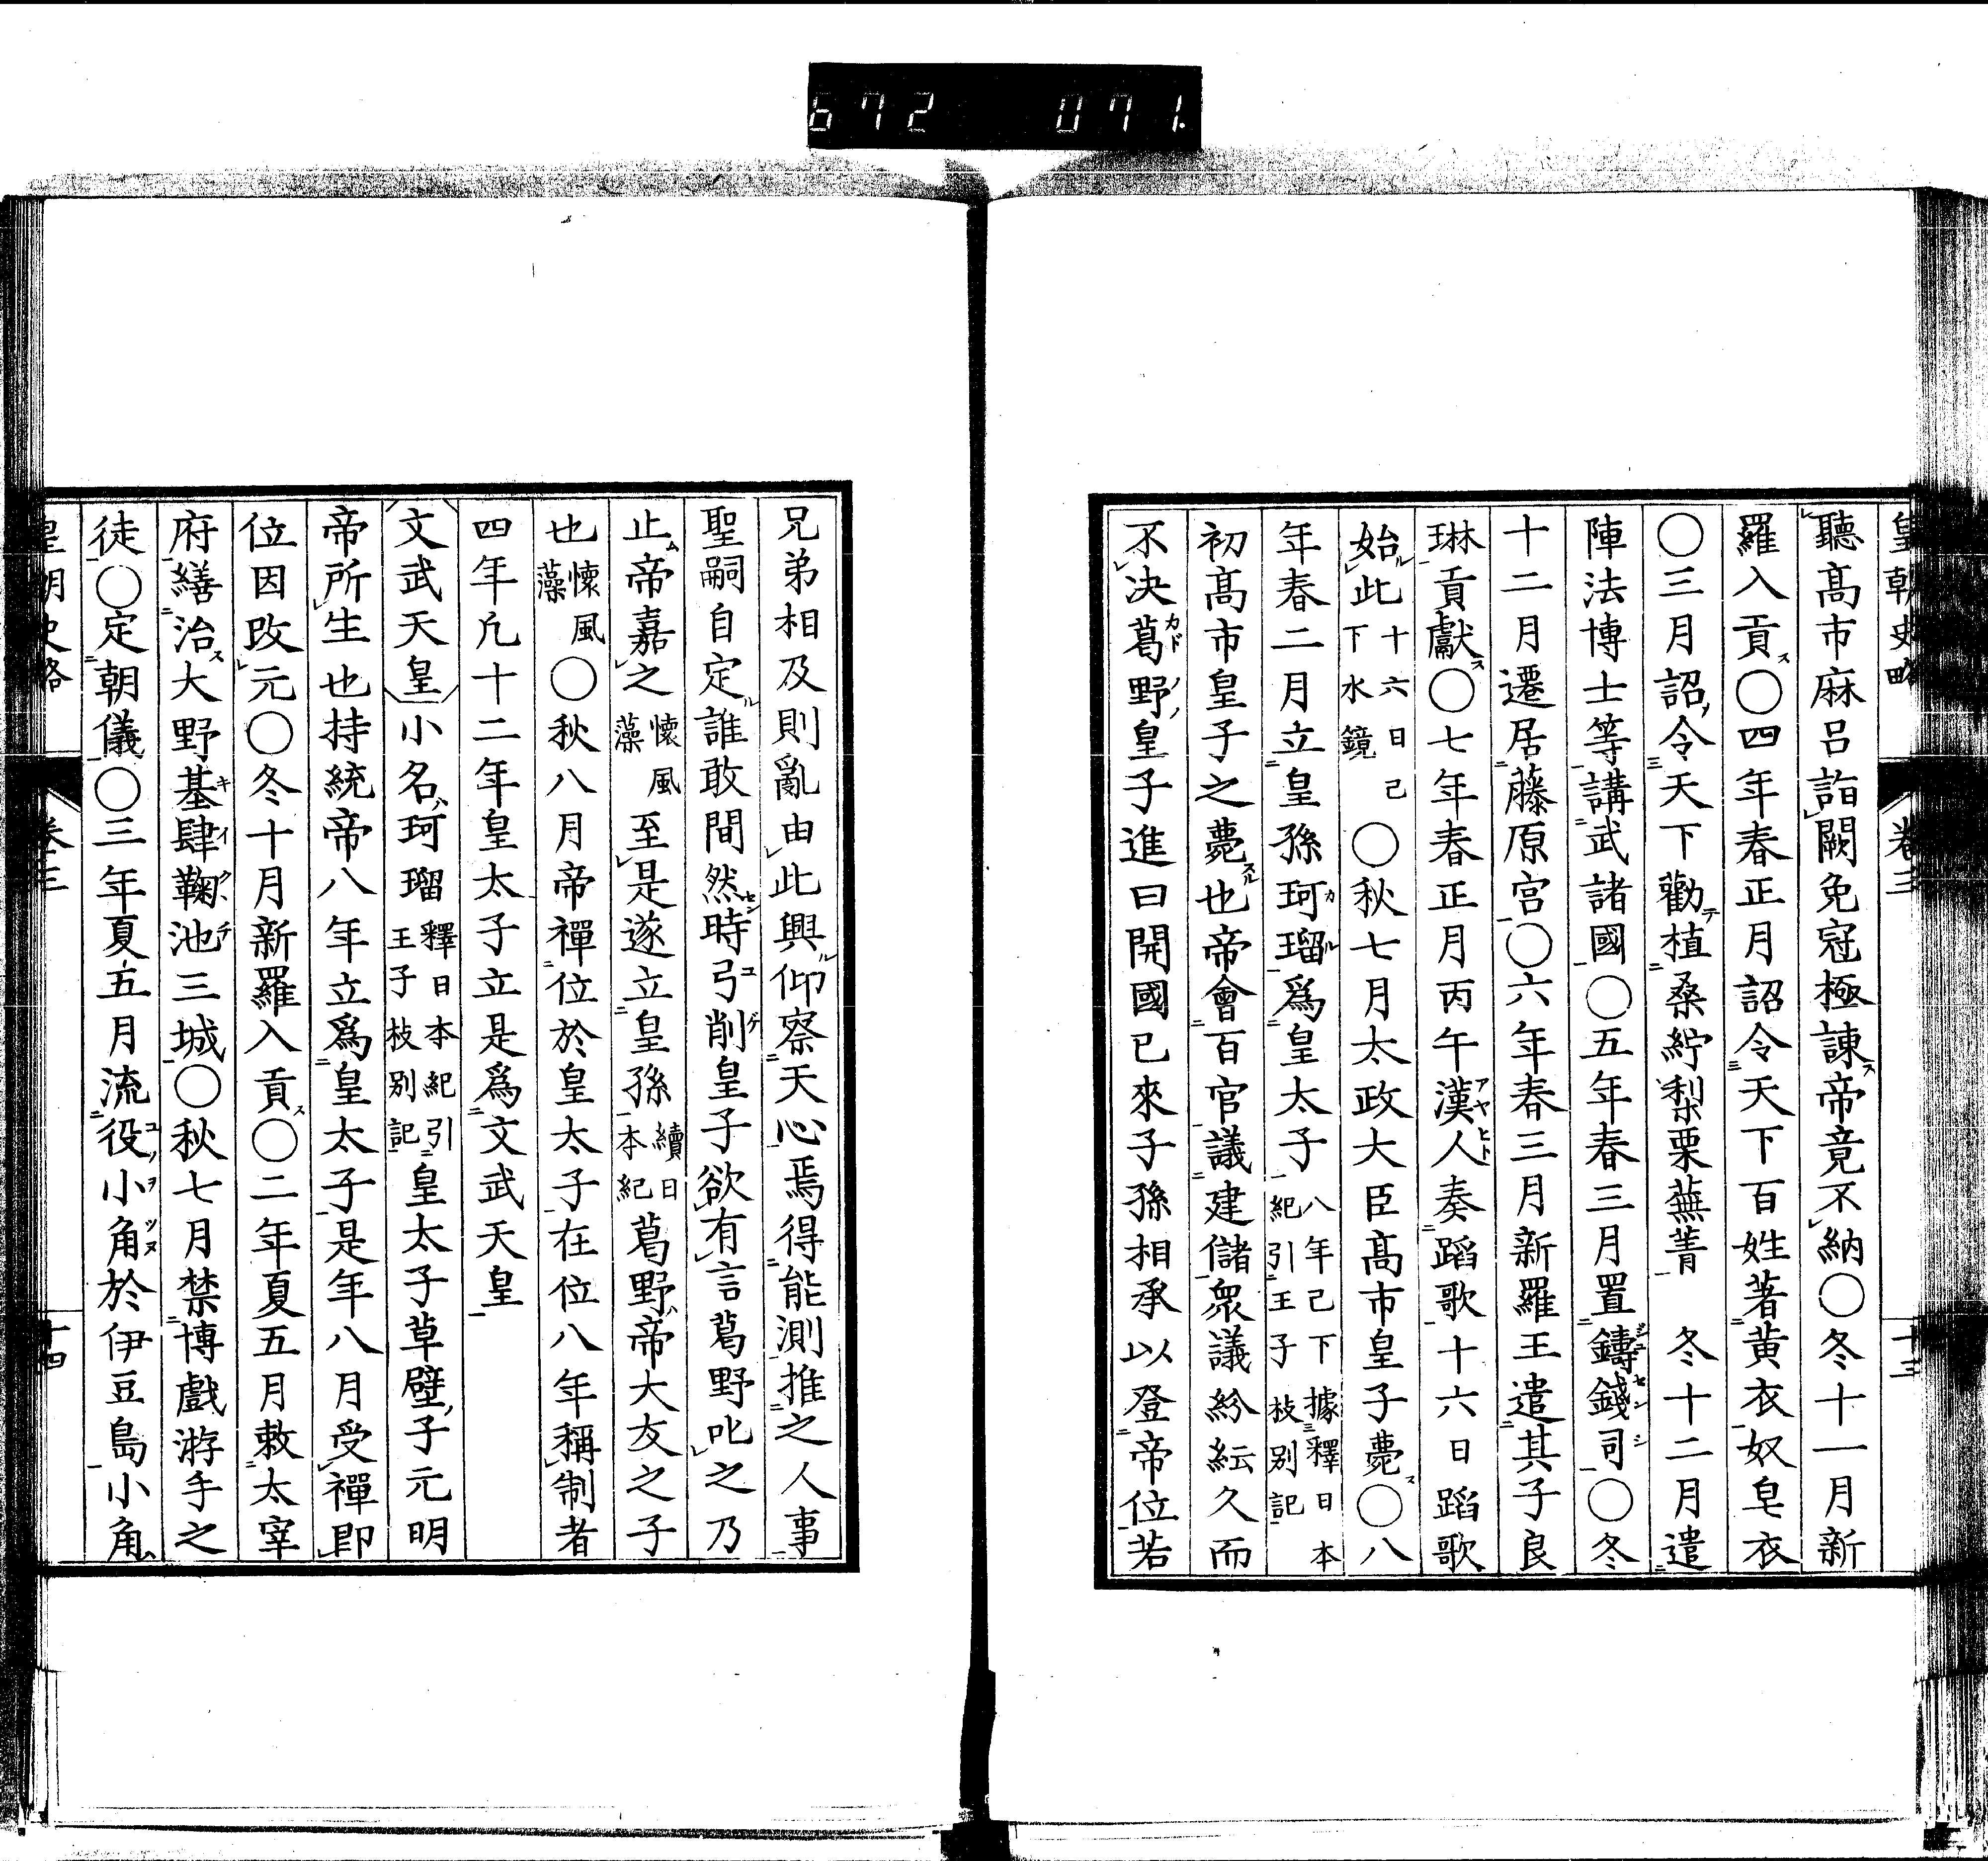 672 071.
皇朝史略 卷三 十三
聽高市麻呂詣闕免冠極諫帝竟不納〇冬十一月新
羅入貢〇四年春正月詔令天下百姓著黄衣奴皂衣
〇三月詔令天下勸植桑紵梨栗蕪菁 冬十二月遣
陣法博士等講武諸國〇五年春三月置鑄錢司〇冬
十二月遷居藤原宮〇六年春三月新羅王遣其子良
琳貢獻〇七年春正月丙午漢人奏蹈歌十六日蹈歌
始此十六日己下水鏡〇秋七月太政大臣高市皇子薨〇八
年春二月立皇孫珂瑠爲皇太子八年己下據釋日本紀引王子枝别記
初高市皇子之薨也帝會百官議建儲衆議紛紜久而
不决葛野皇子進曰開國已來子孫相承以登帝位若
兄弟相及則亂由此興仰察天心焉得能測推之人事
聖嗣自定誰敢間然時弓削皇子欲有言葛野叱之乃
止帝嘉之懷風藻至是遂立皇孫續日本紀葛野帝大友之子
也懷風藻〇秋八月帝禪位於皇太子在位八年稱制者
四年凡十二年皇太子立是爲文武天皇
文武天皇小名珂瑠釋日本紀引王子枝别記皇太子草壁子元明
帝所生也持統帝八年立爲皇太子是年八月受禪即
位因改元〇冬十月新羅入貢〇二年夏五月敕太宰
府繕治大野基肆鞠池三城〇秋七月禁博戲游手之
徒〇定朝儀〇三年夏五月流役小角於伊豆島小角
皇朝史略 卷三 十四